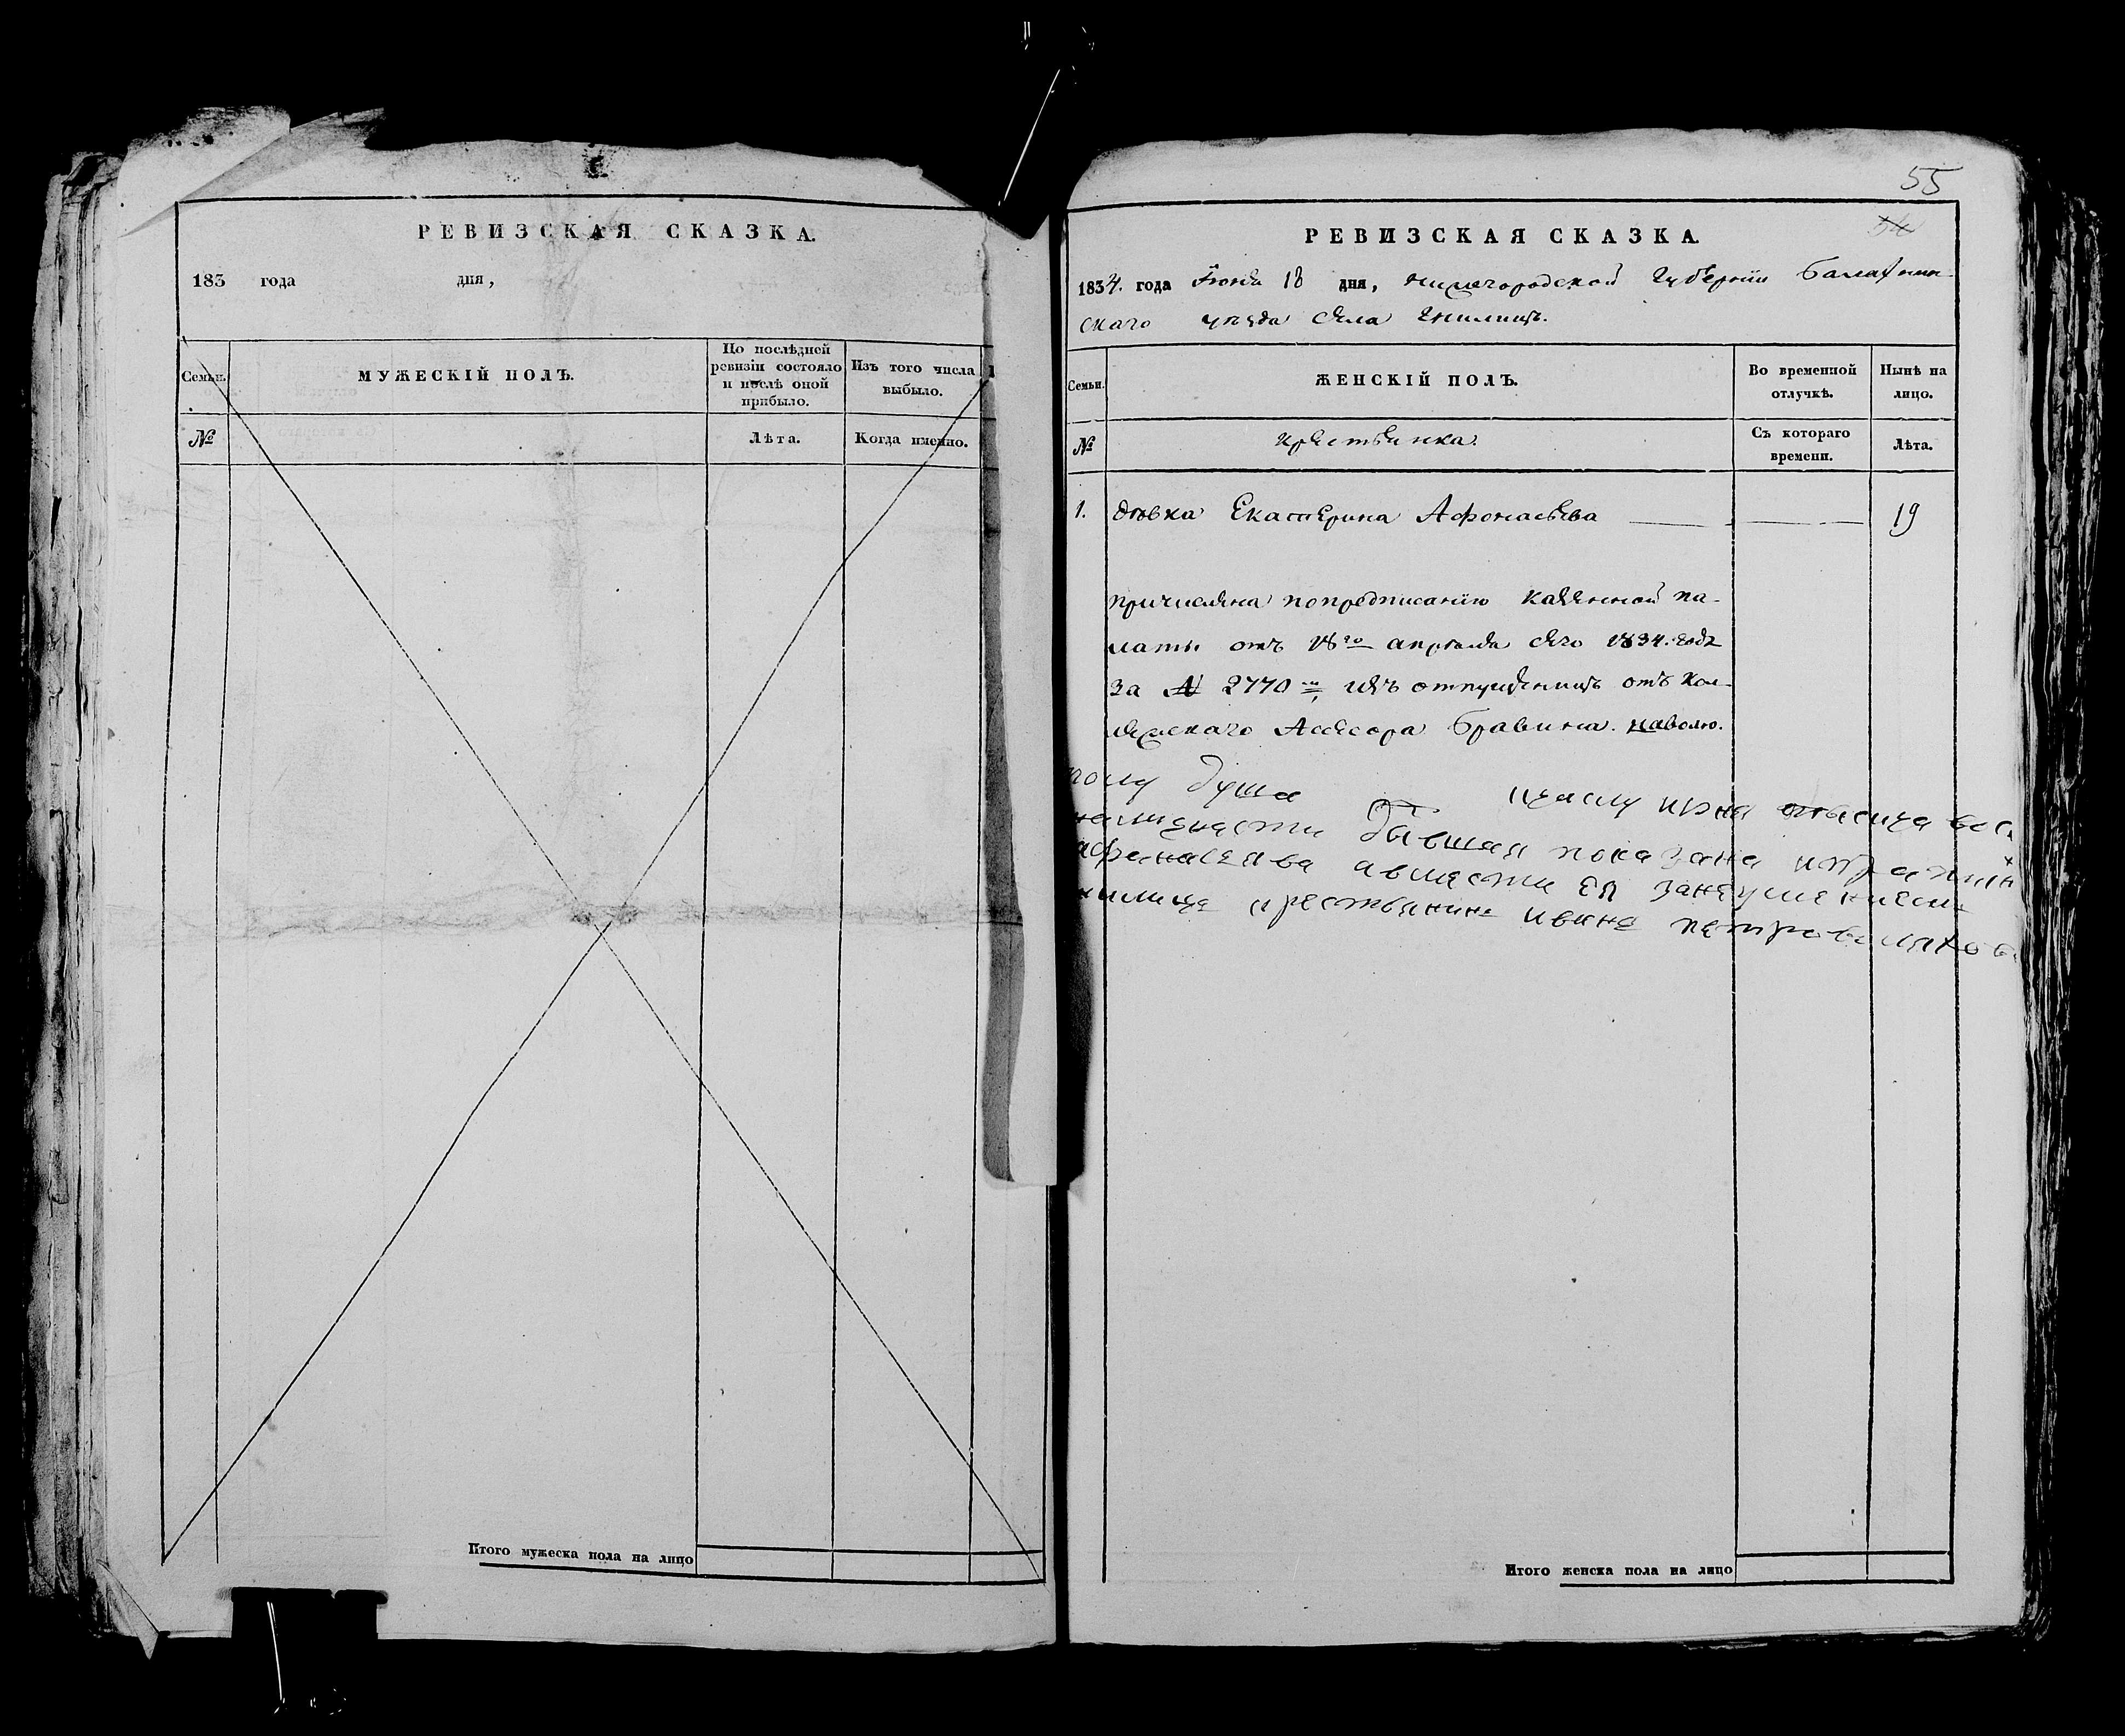 РЕВИЗСКАЯ СКАЗКА.
183 года дня,
Семьи.
МУЖЕСКІЙ ПОЛЪ.
По послѣдней ревизіи состояло и послѣ оной прибыло.
Изъ того числа выбыло.
№
Лѣта.
Когда именно.
Итого мужеска пола на лицо
55
54
РЕВИЗСКАЯ СКАЗКА.
1834. года Іюня 18 дня, нижегородской губерніи балахнин-
скаго уѣзда села гнилицъ.
Семьи.
ЖЕНСКІЙ ПОЛЪ.
Во временной отлучкѣ.
Нынѣ на лицо.
№
крестьянка.
Съ котораго времени.
Лѣта.
1. дѣвка Екатерина Афонасьева 19
причислена попредписанію казенной па-
латы отъ 18го апрѣля сего 1834. года
за № 2770м изъ отпущенницъ отъ кол-
лежскаго Асесора бравина. наволю.
душа
бывшая показана
афанасева авместа ея
крестьянинъ ивана петрова
Итого женска пола на лицо